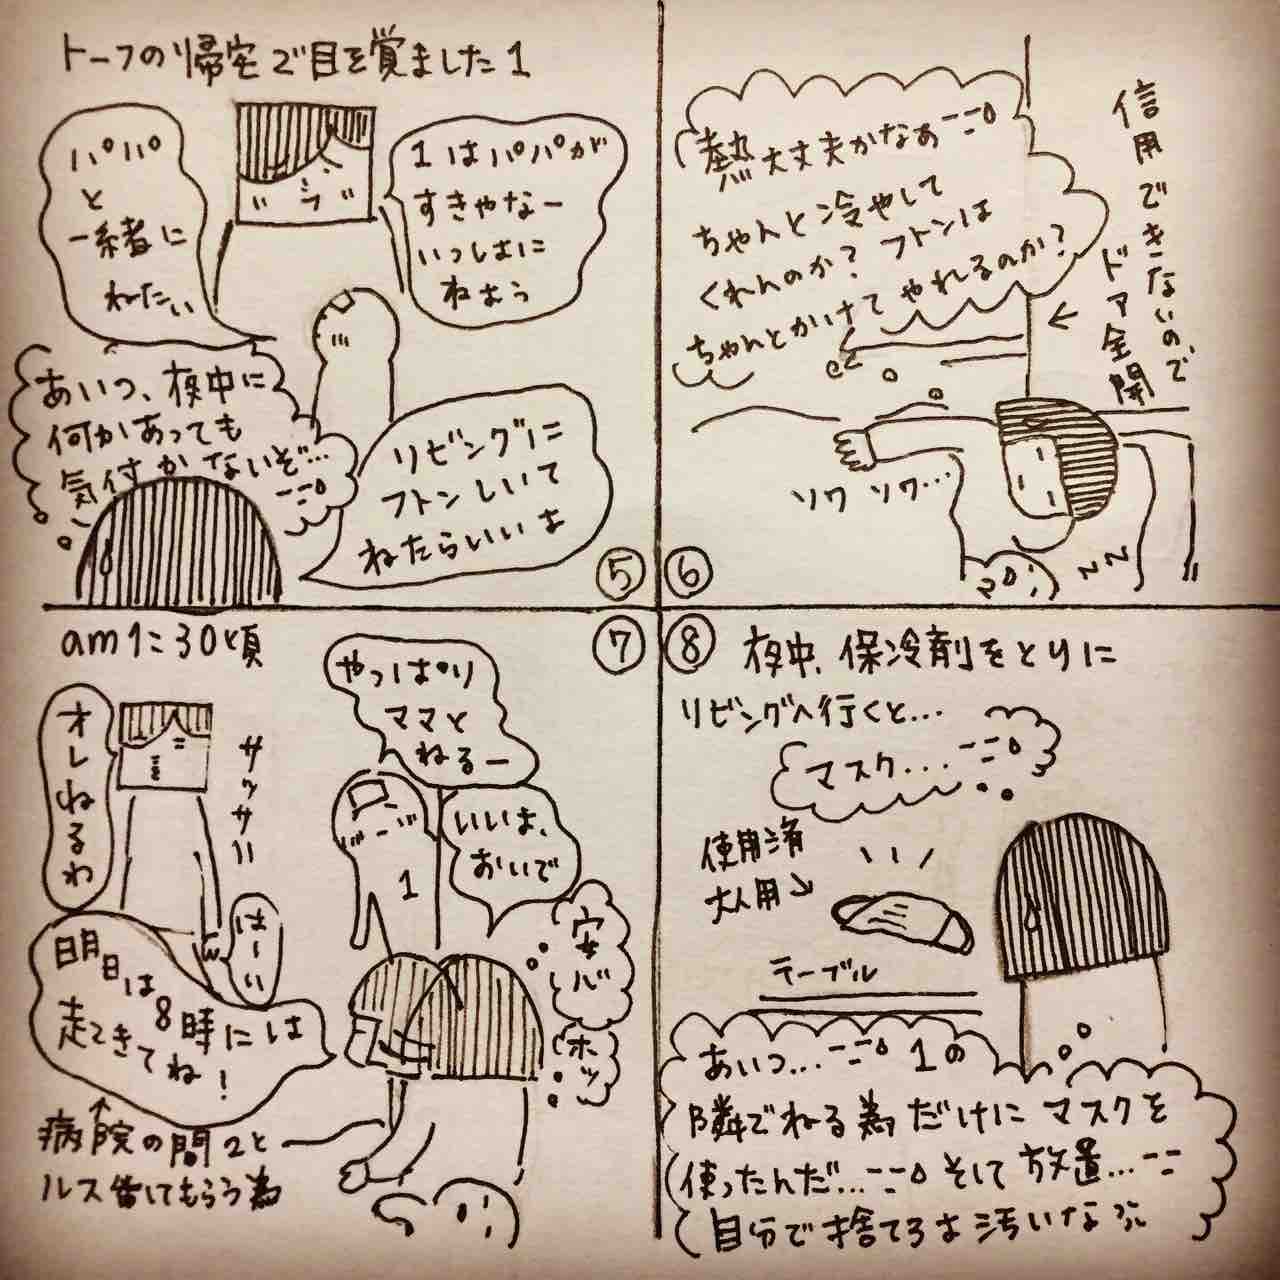 トーフの帰宅で目を覚ました1
パパ
と
一緒に
ねたい
1はパパが
すきやなー
いっしょに
ねよう
あいつ、夜中に
何かあっても
気付かないぞ…
リビングに
フトンしいて
ねたらいいよ
⑤
信用できないので
ドア全開
熱大丈夫かなぁ
ちゃんと冷やして
くれんのか？フトンは
ちゃんとかけてやれるのか？
ソワソワ…
⑥
am1:30頃
⑦
オレねるわ
サッサ
はーい
やっぱり
ママと
ねるー
いいよ、
おいで
1
安心
ホッ
明日は8時には
起きてきてね！
病院の間2と
ルス番してもらう為
⑧
夜中、保冷剤をとりに
リビングへ行くと…
マスク...
使用済
大人用
テーブル
あいつ... 1の
隣でねる為だけにマスクを
使ったんだ... そして放置...
自分で捨てろよ汚いな